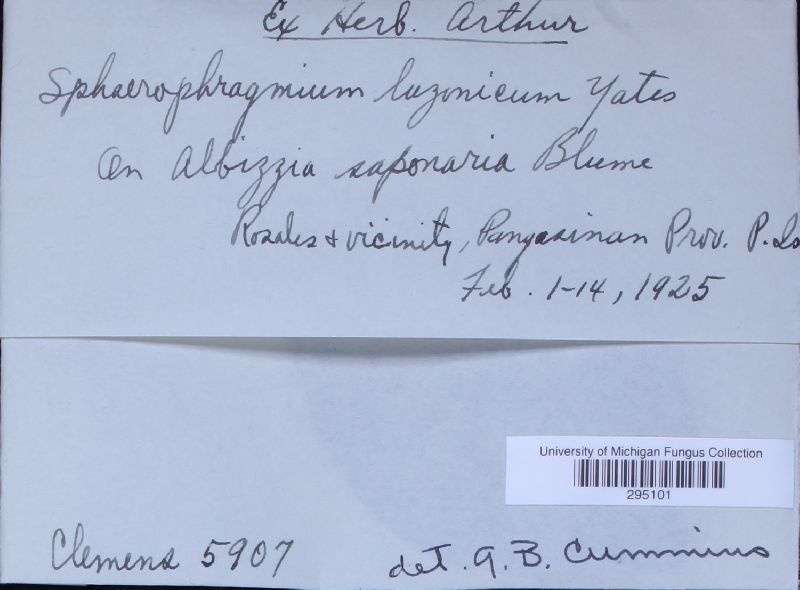 Ex Herb. Arthur
Sphaerophragmium luzonicum Yates
On Albizzia saponaria Blume
Rosales & vicinity, Pangasinan Prov. P. Is
Feb. 1-14, 1925
University of Michigan Fungus Collection
295101
Clemens 5907
det. G. B. Cummins